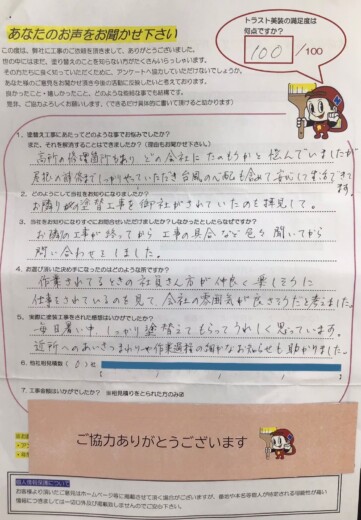 あなたのお声をお聞かせ下さい
トラスト美装の満足度は
何点ですか?
100 /100
この度は、弊社に工事のご依頼を頂きまして、ありがとうございました。
世の中にはまだ、塗り替えのことを知らない方がたくさんいらっしゃいます。
その方たちに良く知っていただくために、アンケートへ協力していただけないでしょうか。
あなた様のご意見をお聞かせ頂き今後の活動に繋げたいと考えております。
良かったこと・嬉しかったこと、どのような些細な事でも結構です。
是非、ご協力よろしくお願いします。(できるだけ具体的に書いて頂けると助かります)
1. 塗替え工事にあたってどのような事でお悩みでしたか?
また、それを解消することはできましたか?(理由もお聞かせ下さい。)
高所の修理箇所もあり どの会社に たのもうかと悩んでいましたが
屋根の補修までしっかりやっていただき 台風の心配も含めて安心して生活できて
ます。
2. どのようにして当社をお知りになりましたか?
お隣りが塗替工事を御社がされていたのを拝見して。
3. 当社をお知りになりすぐにお問合せいただけましたか?しなかったとしたらなぜですか?
お隣の工事が終ってから 工事の具合など色々聞いてから
問い合わせをしました。
4. お選び頂いた決め手になったのはどのような所ですか?
作業されてるときの社員さん方が仲良く楽しそうに
仕事をされているのを見て、会社の雰囲気が良さそうだと考ました。
5. 実際に塗装工事をされた感想はいかがでしたか?
毎日暑い中、しっかり塗替えてもらってうれしく思っています。
近所へのあいさつまわりや作業過程の細かなお知らせも助かりました。
6. 他社相見積数 ( 0 )社
7. 工事価格はいかがでしたか? ※相見積りをとられた方のみ
ご協力ありがとうございます
個人情報保護について
お客様より頂いたご意見はホームページ等に掲載させて頂く場合がございますが、